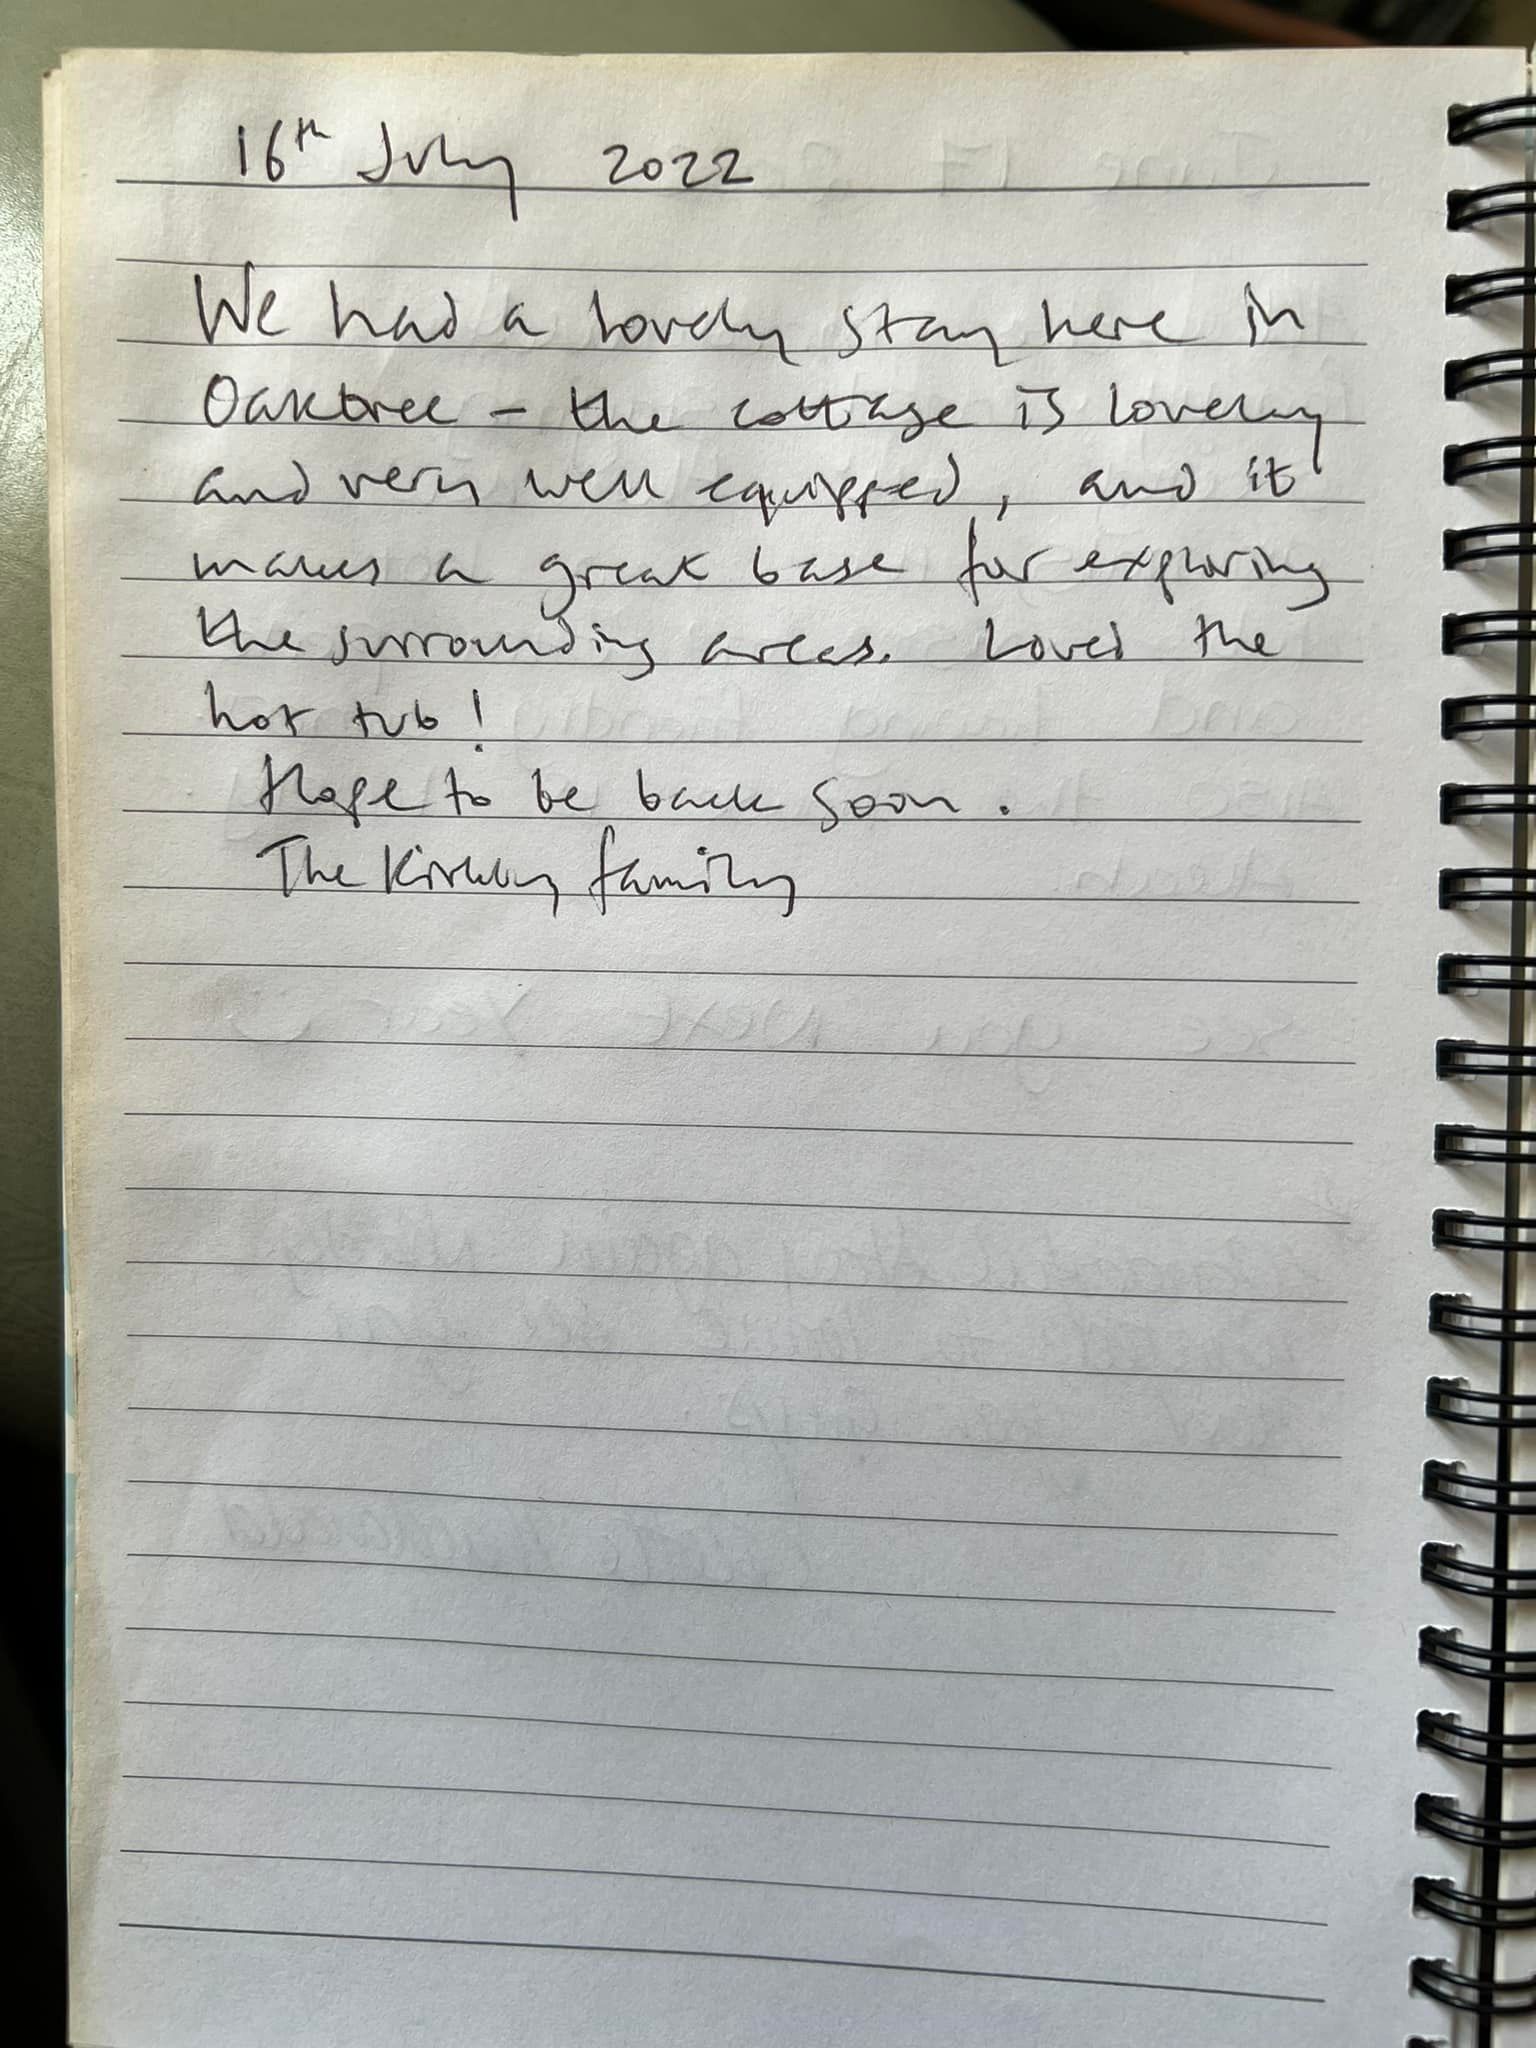 16th July 2022
We had a lovely stay here in
Oaktree - the cottage is lovely
and very well equipped, and it
makes a great base for exploring
the surrounding areas. Loved the
hot tub!
Hope to be back soon.
The Kirkby family